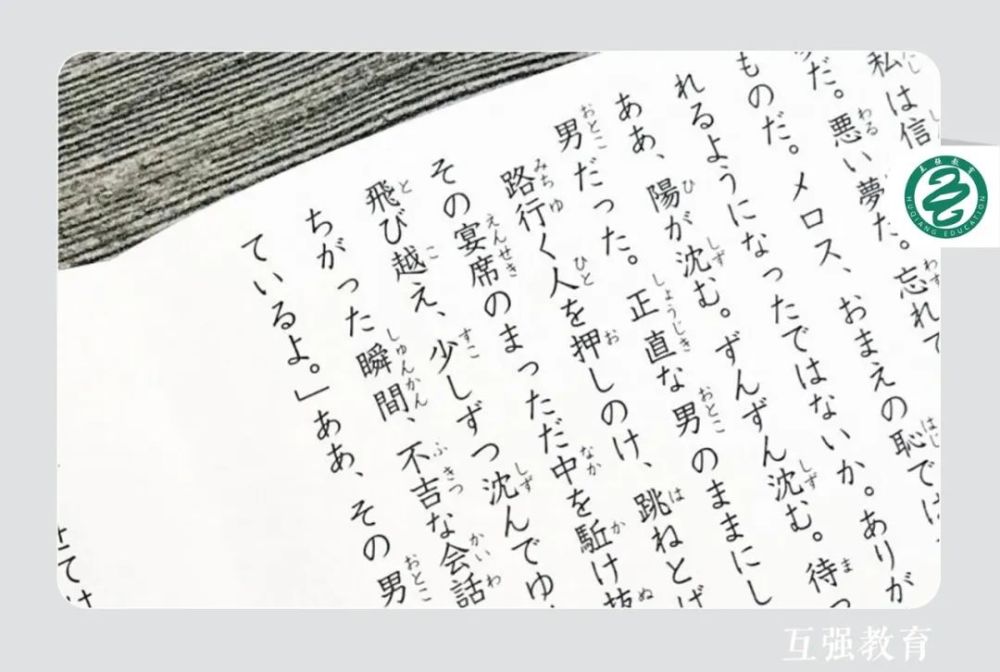 私は信
だ。悪い夢だ。忘れて
ものだ。メロス、おまえの恥では
れるようになったではないか。ありが
ああ、陽が沈む。ずんずん沈む。待っ
男だった。正直な男のままにし
路行く人を押しのけ、跳ねとば
その宴席のまっただ中を駈け抜
飛び越え、少しずつ沈んでゆ
ちがった瞬間、不吉な会話
ているよ。」ああ、その男
互强教育
HUQIANG EDUCATION
互强教育